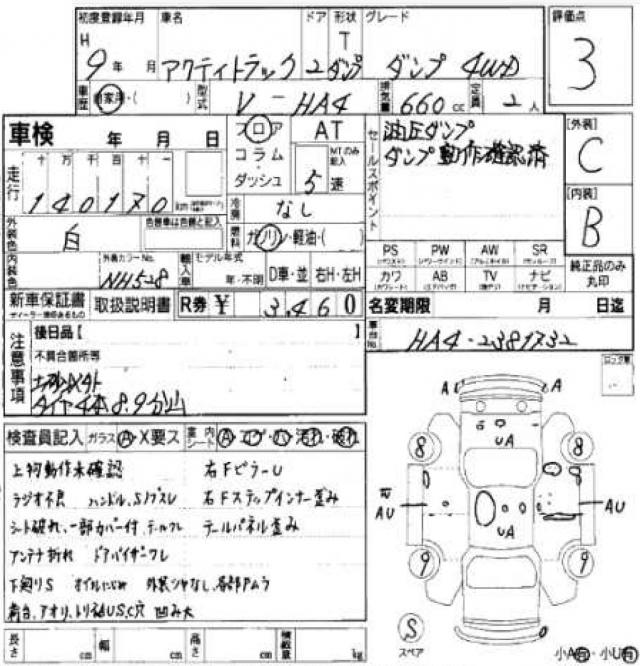 初度登録年月 車名 ドア 形状 グレード 評価点
H 9年 月 アクティトラック 2 T ダンプ ダンプ 4WD 3
車歴 自家用・( ) 型式 V-HA4 排気量 660cc 定員 2人
車検 年 月 日 フロア・コラム・ダッシュ AT MTのみ記入 5速
セールスポイント 油圧ダンプ
ダンプ動作確認済
[外装] C
[内装] B
走行 十万千百十 140170km
冷房 なし
外装色 白 色替車は色替と記入 燃料 ガソリン・軽油・( )
内装色 外装カラーNo. NH528 輸入車 モデル年式 年・不明 D車・並 右H・左H
PS PW AW SR
カワ AB TV ナビ
純正品のみ丸印
新車保証書 取扱説明書 R券 ¥ 3,460 名変期限 月 日迄
車台No. HA4-2381732
注意事項 後日品[ ]
不具合箇所等
タイヤ4本8.9分山
検査員記入 ガラス A・X要ス 室内シート A・コゲ・穴・汚れ・破れ
上物動作未確認 右FピラーU
ラジオ不良 ハンドル、Sノブスレ 右Fステップインナー歪み
シート破れ、一部カバー付、テールワレ テールパネル歪み
アンテナ折れ ドアバイザーワレ
下廻りS オイルにじみ 外装ツヤなし、各部Aムラ
荷台、アオリ、トリイU S、C穴 凹み大
A A
UA
8 8
AU AU
UA
9 9
S
スペア
小A有・小U有
長さ cm 幅 cm 高さ cm 積載量 kg